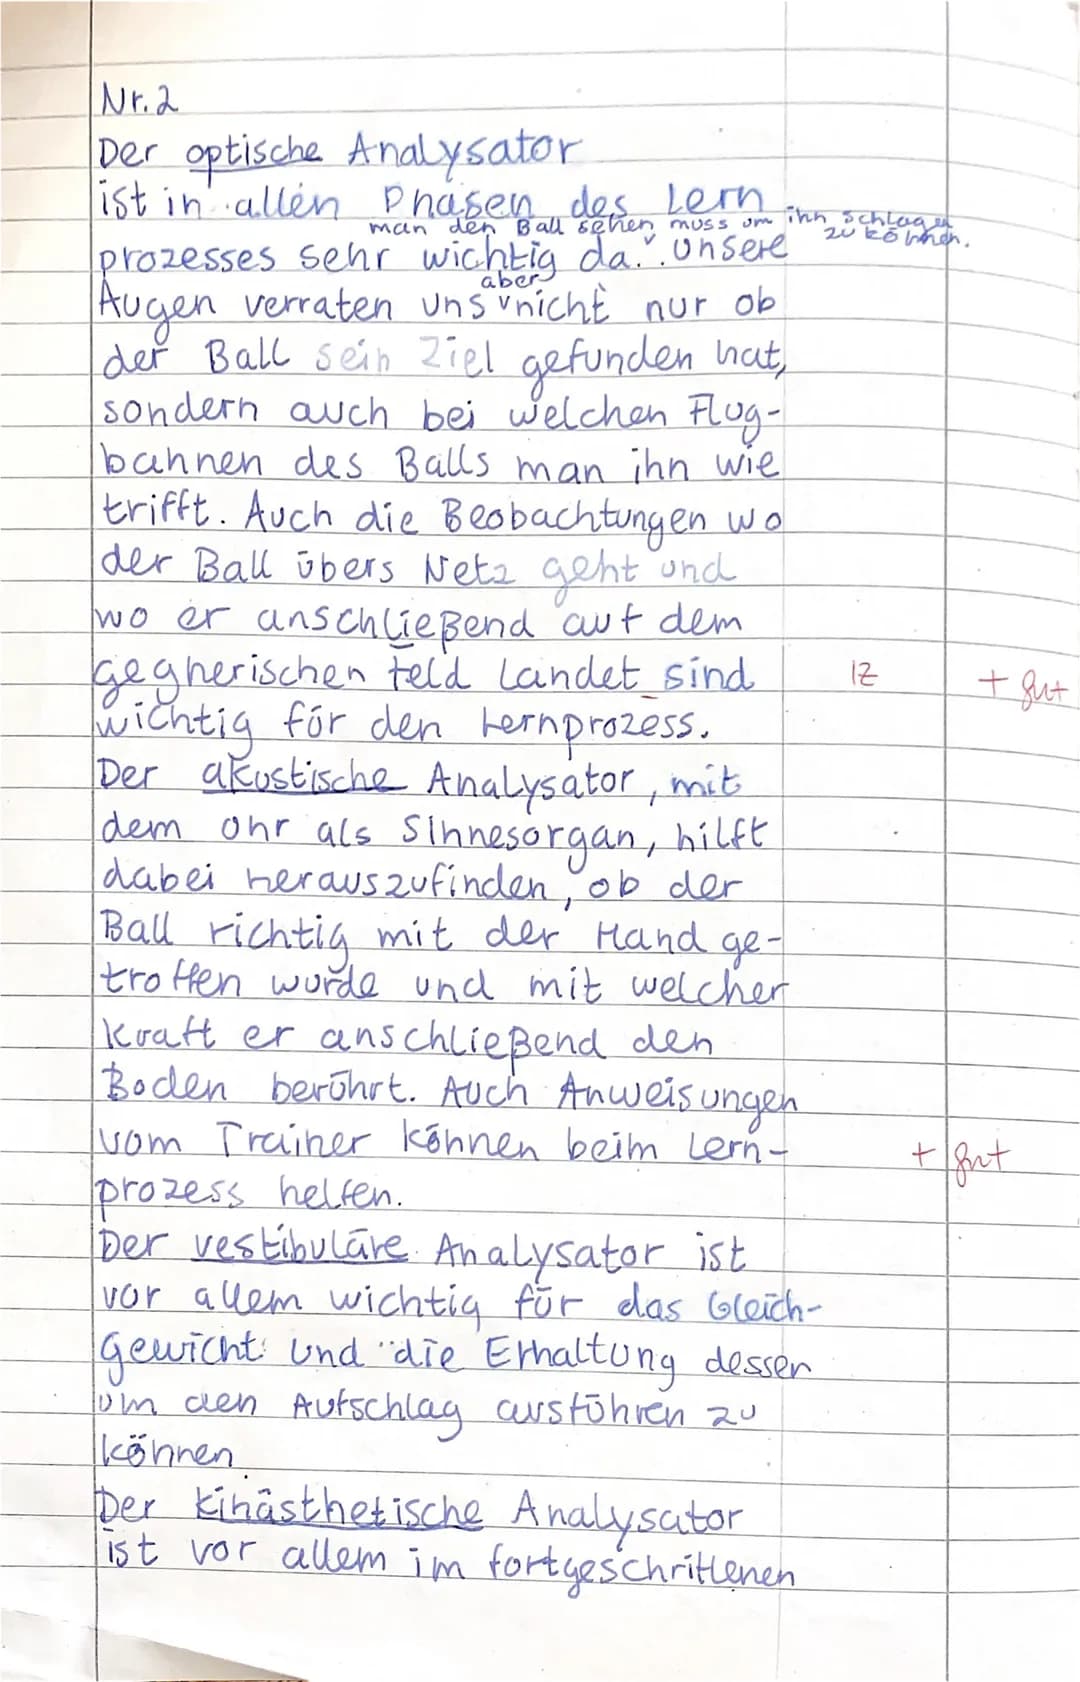 Nr. 2
Der optische Analysator
ist in allen Phasen des Lern
man den Ball sehen muss um ihn schlagen
zu können.
prozesses sehr wichtig da. Unsere
aber
Augen verraten uns nicht nur ob
der Ball sein Ziel gefunden hat,
sondern auch bei welchen Flug-
bahnen des Balls man ihn wie
trifft. Auch die Beobachtungen wo
der Ball übers Netz geht und
wo er anschließend auf dem
gegnerischen Feld landet sind IZ + gut
wichtig für den Lernprozess.
Der akustische Analysator, mit
dem Ohr als Sinnesorgan, hilft
dabei herauszufinden, ob der
Ball richtig mit der Hand ge-
troffen wurde und mit welcher
Kraft er anschließend den
Boden berührt. Auch Anweisungen
vom Trainer können beim Lern- + gut
prozess helfen.
Der vestibuläre Analysator ist
vor allem wichtig für das Gleich-
gewicht und die Erhaltung dessen
um den Aufschlag ausführen zu
können
Der kinästhetische Analysator
ist vor allem im fortgeschrittenen